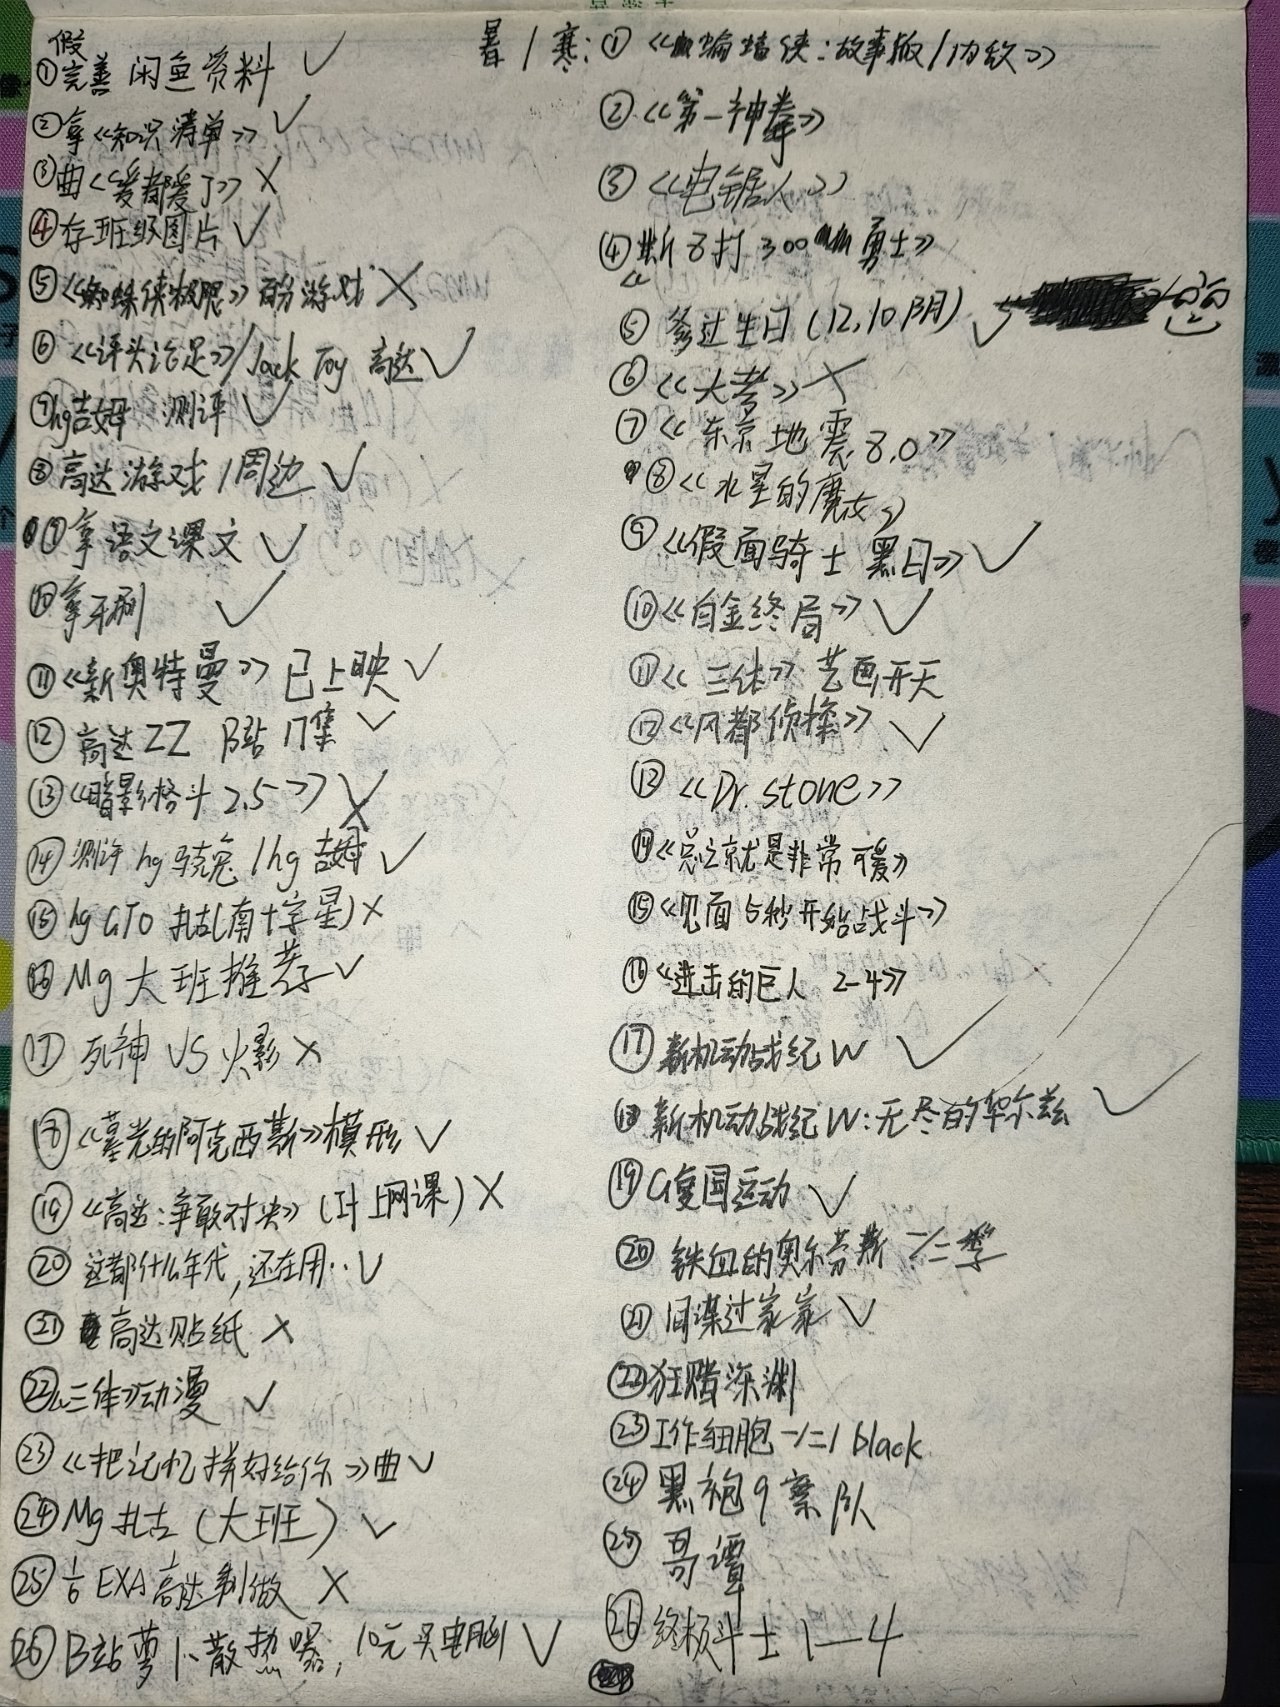 假
①完善闲鱼资料 ✓
②拿《知识清单》 ✓
③曲《爱都爱了》 X
④存班级图片 ✓
⑤《蜘蛛侠极限》游戏 X
⑥《评头论足》/Jack Toy 高达 ✓
⑦hg吉姆 测评 ✓
⑧高达游戏/周边 ✓
⑨拿语文课文 ✓
⑩拿牙刷 ✓
⑪《新奥特曼》已上映 ✓
⑫高达ZZ B站 17集 ✓
⑬《暗影格斗2.5》 X
⑭测评hg马克兔/hg吉姆 ✓
⑮hg GTO扎古(南十字星) X
⑯Mg大班推荐 ✓
⑰死神VS火影 X
⑱《暮光的阿克西斯》模形 ✓
⑲《高达:争敢对决》(上网课) X
⑳这都什么年代,还在用.. ✓
㉑高达贴纸 X
㉒《三体》动漫 ✓
㉓《把记忆拼好给你》曲 ✓
㉔Mg扎古(大班) ✓
㉕1/6 EXA高达制做 X
㉖B站萝卜散热器,10元买电脑 ✓
暑/寒:①《蝙蝠侠:故事版/内敌》
②《第一神拳》
③《电锯人》
④《斯巴打300勇士》
⑤爹过生日(12.10阴) ✓
⑥《大考》 X
⑦《东京地震8.0》
⑧《水星的魔女》
⑨《假面骑士 黑日》 ✓
⑩《白金终局》 ✓
⑪《三体》艺画开天
⑫《风都侦探》 ✓
⑬《Dr. stone》
⑭《总之就是非常可爱》
⑮《见面5秒开始战斗》
⑯《进击的巨人 2-4》
⑰新机动战纪W ✓
⑱新机动战纪W:无尽的华尔兹 ✓
⑲G复国运动 ✓
⑳铁血的奥尔芬斯 一/二季
㉑间谍过家家 ✓
㉒狂赌深渊
㉓工作细胞一/二/black
㉔黑袍9察队
㉕哥谭
㉖终极斗士1—4